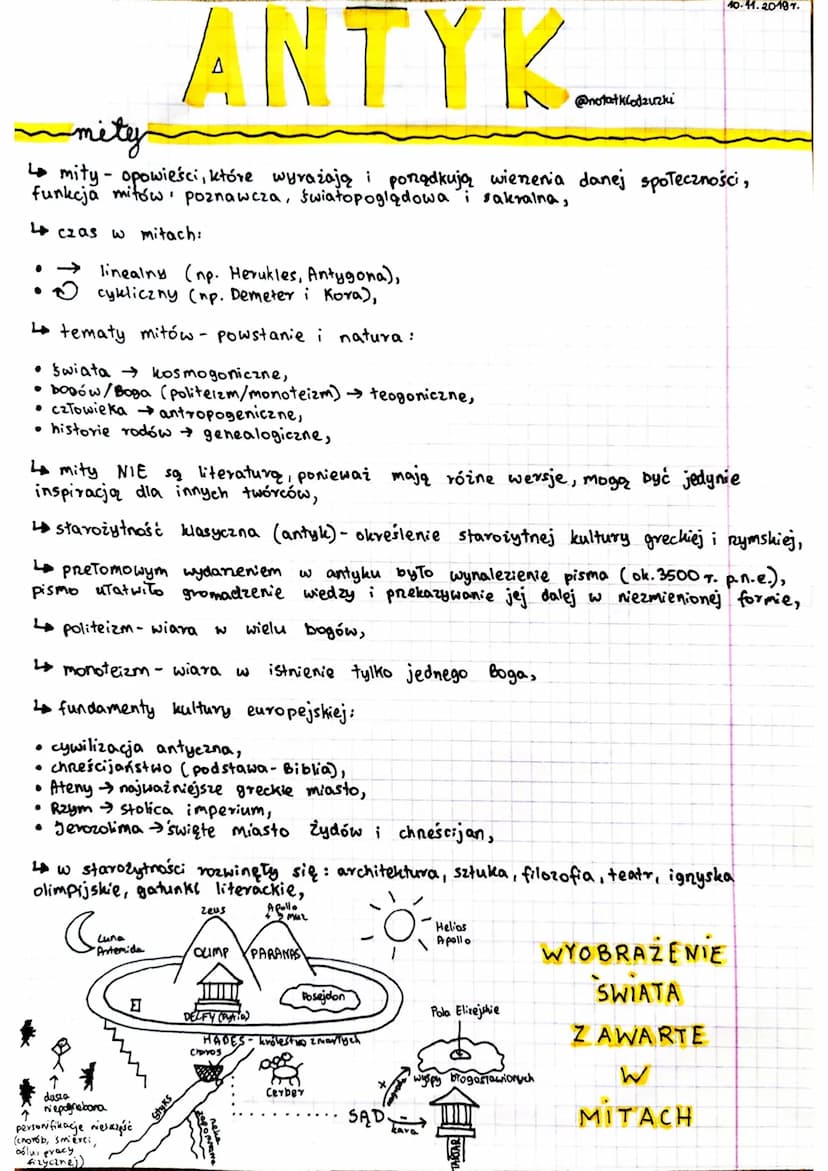 10.11.2019r.
ANTYK
@notatkiodzuzki
mity
↳ mity - opowieści, które wyrażają i porządkują wierzenia danej społeczności,
funkcja mitów: poznawcza, światopoglądowa i sakralna,
↳ czas w mitach:
• → linealny (np. Herukles, Antygona),
• ↻ cykliczny (np. Demeter i Kora),
↳ tematy mitów - powstanie i natura:
• świata → kosmogoniczne,
• bogów/Boga (politeizm/monoteizm) → teogoniczne,
• człowieka → antropogeniczne,
• historie rodów → genealogiczne,
↳ mity NIE są literaturą, ponieważ mają różne wersje, mogą być jedynie
inspiracją dla innych twórców,
↳ starożytność klasyczna (antyk) - określenie starożytnej kultury greckiej i rzymskiej,
↳ przełomowym wydarzeniem w antyku było wynalezienie pisma (ok. 3500 r. p.n.e.),
pismo ułatwiło gromadzenie wiedzy i przekazywanie jej dalej w niezmienionej formie,
↳ politeizm - wiara w wielu bogów,
↳ monoteizm - wiara w istnienie tylko jednego Boga,
↳ fundamenty kultury europejskiej:
• cywilizacja antyczna,
• chrześcijaństwo (podstawa - Biblia),
• Ateny → najważniejsze greckie miasto,
• Rzym → stolica imperium,
• Jerozolima → święte miasto Żydów i chrześcijan,
↳ w starożytności rozwinęły się: architektura, sztuka, filozofia, teatr, igrzyska
olimpijskie, gatunki literackie,
Zeus
Apollo
9 muz
Luna
Artemida
OLIMP
PARANAS
Helios
Apollo
Posejdon
DELFY (Pytia)
HADES - królestwo zmarłych
Charos
Cerber
STYKS
rzeka
zapomnienia
dusza
niepogrzebana
personifikacje nieszczęść
(chorób, śmierci,
bólu, pracy
fizycznej)
Pola Elizejskie
wyspy błogosławionych
nagroda
SĄD
kara
TARTAR
WYOBRAŻENIE
ŚWIATA
ZAWARTE
W
MITACH